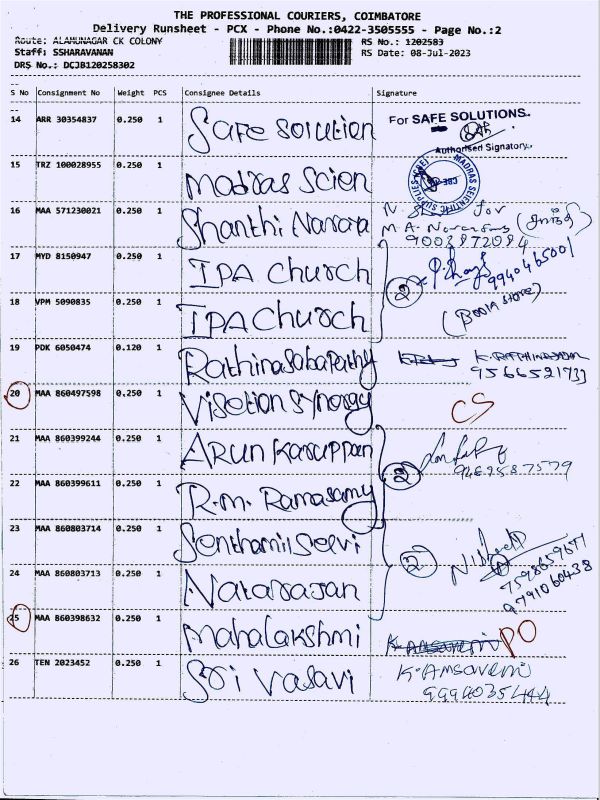 THE PROFESSIONAL COURIERS, COIMBATORE
Delivery Runsheet - PCX - Phone No.:0422-3505555 - Page No.:2
Route: ALAMUNAGAR CK COLONY RS No.: 1202583
Staff: SSHARAVANAN RS Date: 08-Jul-2023
DRS No.: DCJB120258302
S No Consignment No Weight PCS Consignee Details Signature
14 ARR 30354837 0.250 1 Safe Solution For SAFE SOLUTIONS.
Authorised Signatory.
15 TRZ 100028955 0.250 1 Madras Scien
MADRAS SCIENTIFIC SUPPLIES (CBE)
16 MAA 571230021 0.250 1 Shanthi Narara N. for
M.A. 9003872084
17 MYD 8150947 0.250 1 IPA Church 2 9940465001
18 VPM 5090835 0.250 1 IPA Church (Book Store)
19 PDK 6050474 0.120 1 Rathinasabapathy
20 MAA 860497598 0.250 1 Visetion Synorgy CS
21 MAA 860399244 0.250 1 Arun Karuppan 2
22 MAA 860399611 0.250 1 R.M. Ramasamy
23 MAA 860803714 0.250 1 Senthamil Selvi 2
24 MAA 860803713 0.250 1 Natarasan 9791060438
25 MAA 860398632 0.250 1 Mahalakshmi PO
26 TEN 2023452 0.250 1 Sri Vasavi K. Amsaveni